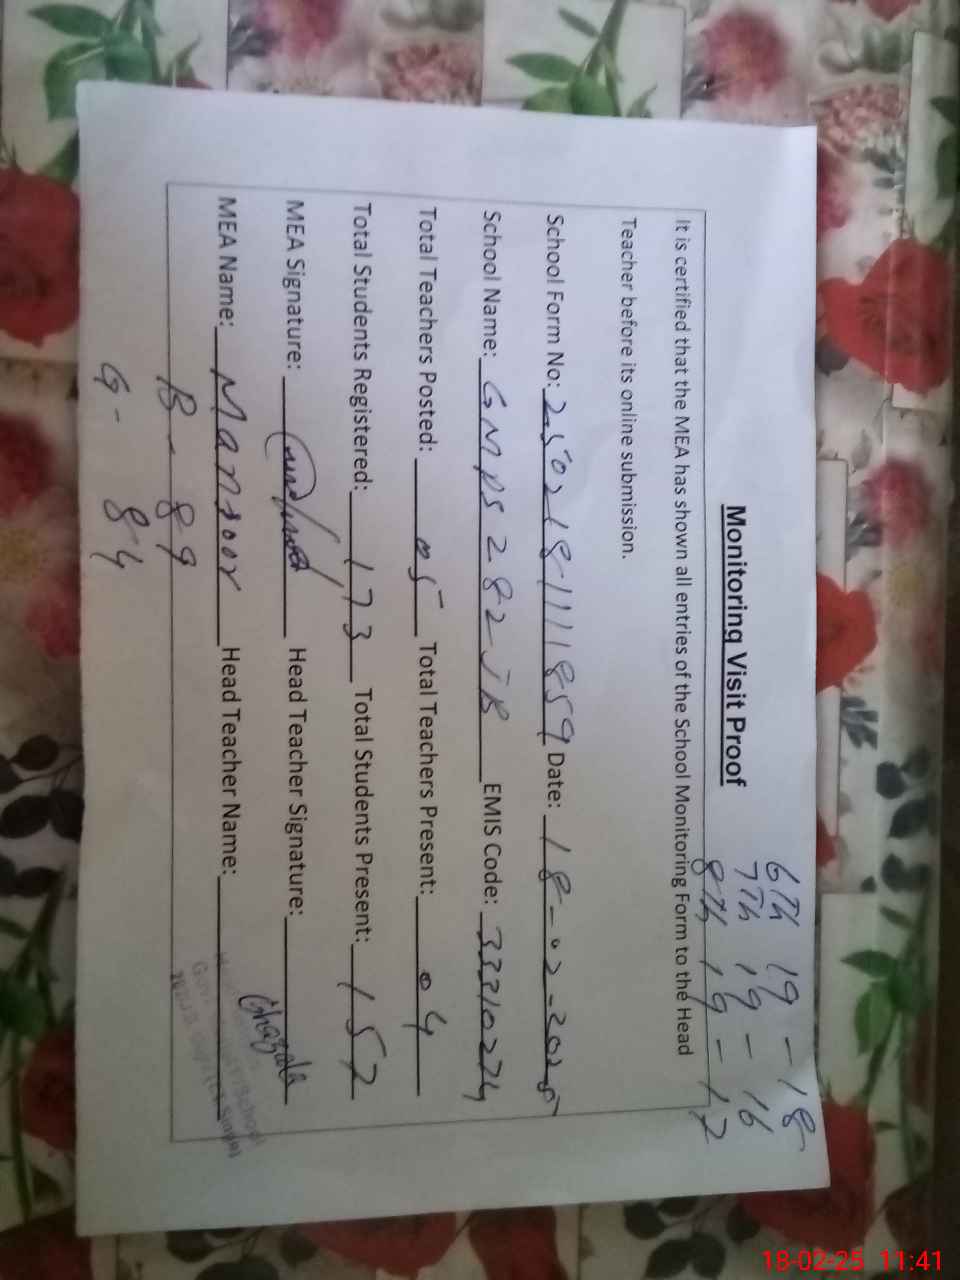 Monitoring Visit Proof
6th 19 - 18
7th 19 - 16
8th 19 - 17
It is certified that the MEA has shown all entries of the School Monitoring Form to the Head
Teacher before its online submission.
School Form No: 250218111859 Date: 18-02-2025
School Name: GMPS 282 JB EMIS Code: 33310274
Total Teachers Posted: 05 Total Teachers Present: 04
Total Students Registered: 173 Total Students Present: 157
MEA Signature: Head Teacher Signature: Ghazala
MEA Name: Mansoor Head Teacher Name:
B - 89
G - 84
18-02-25 11:41